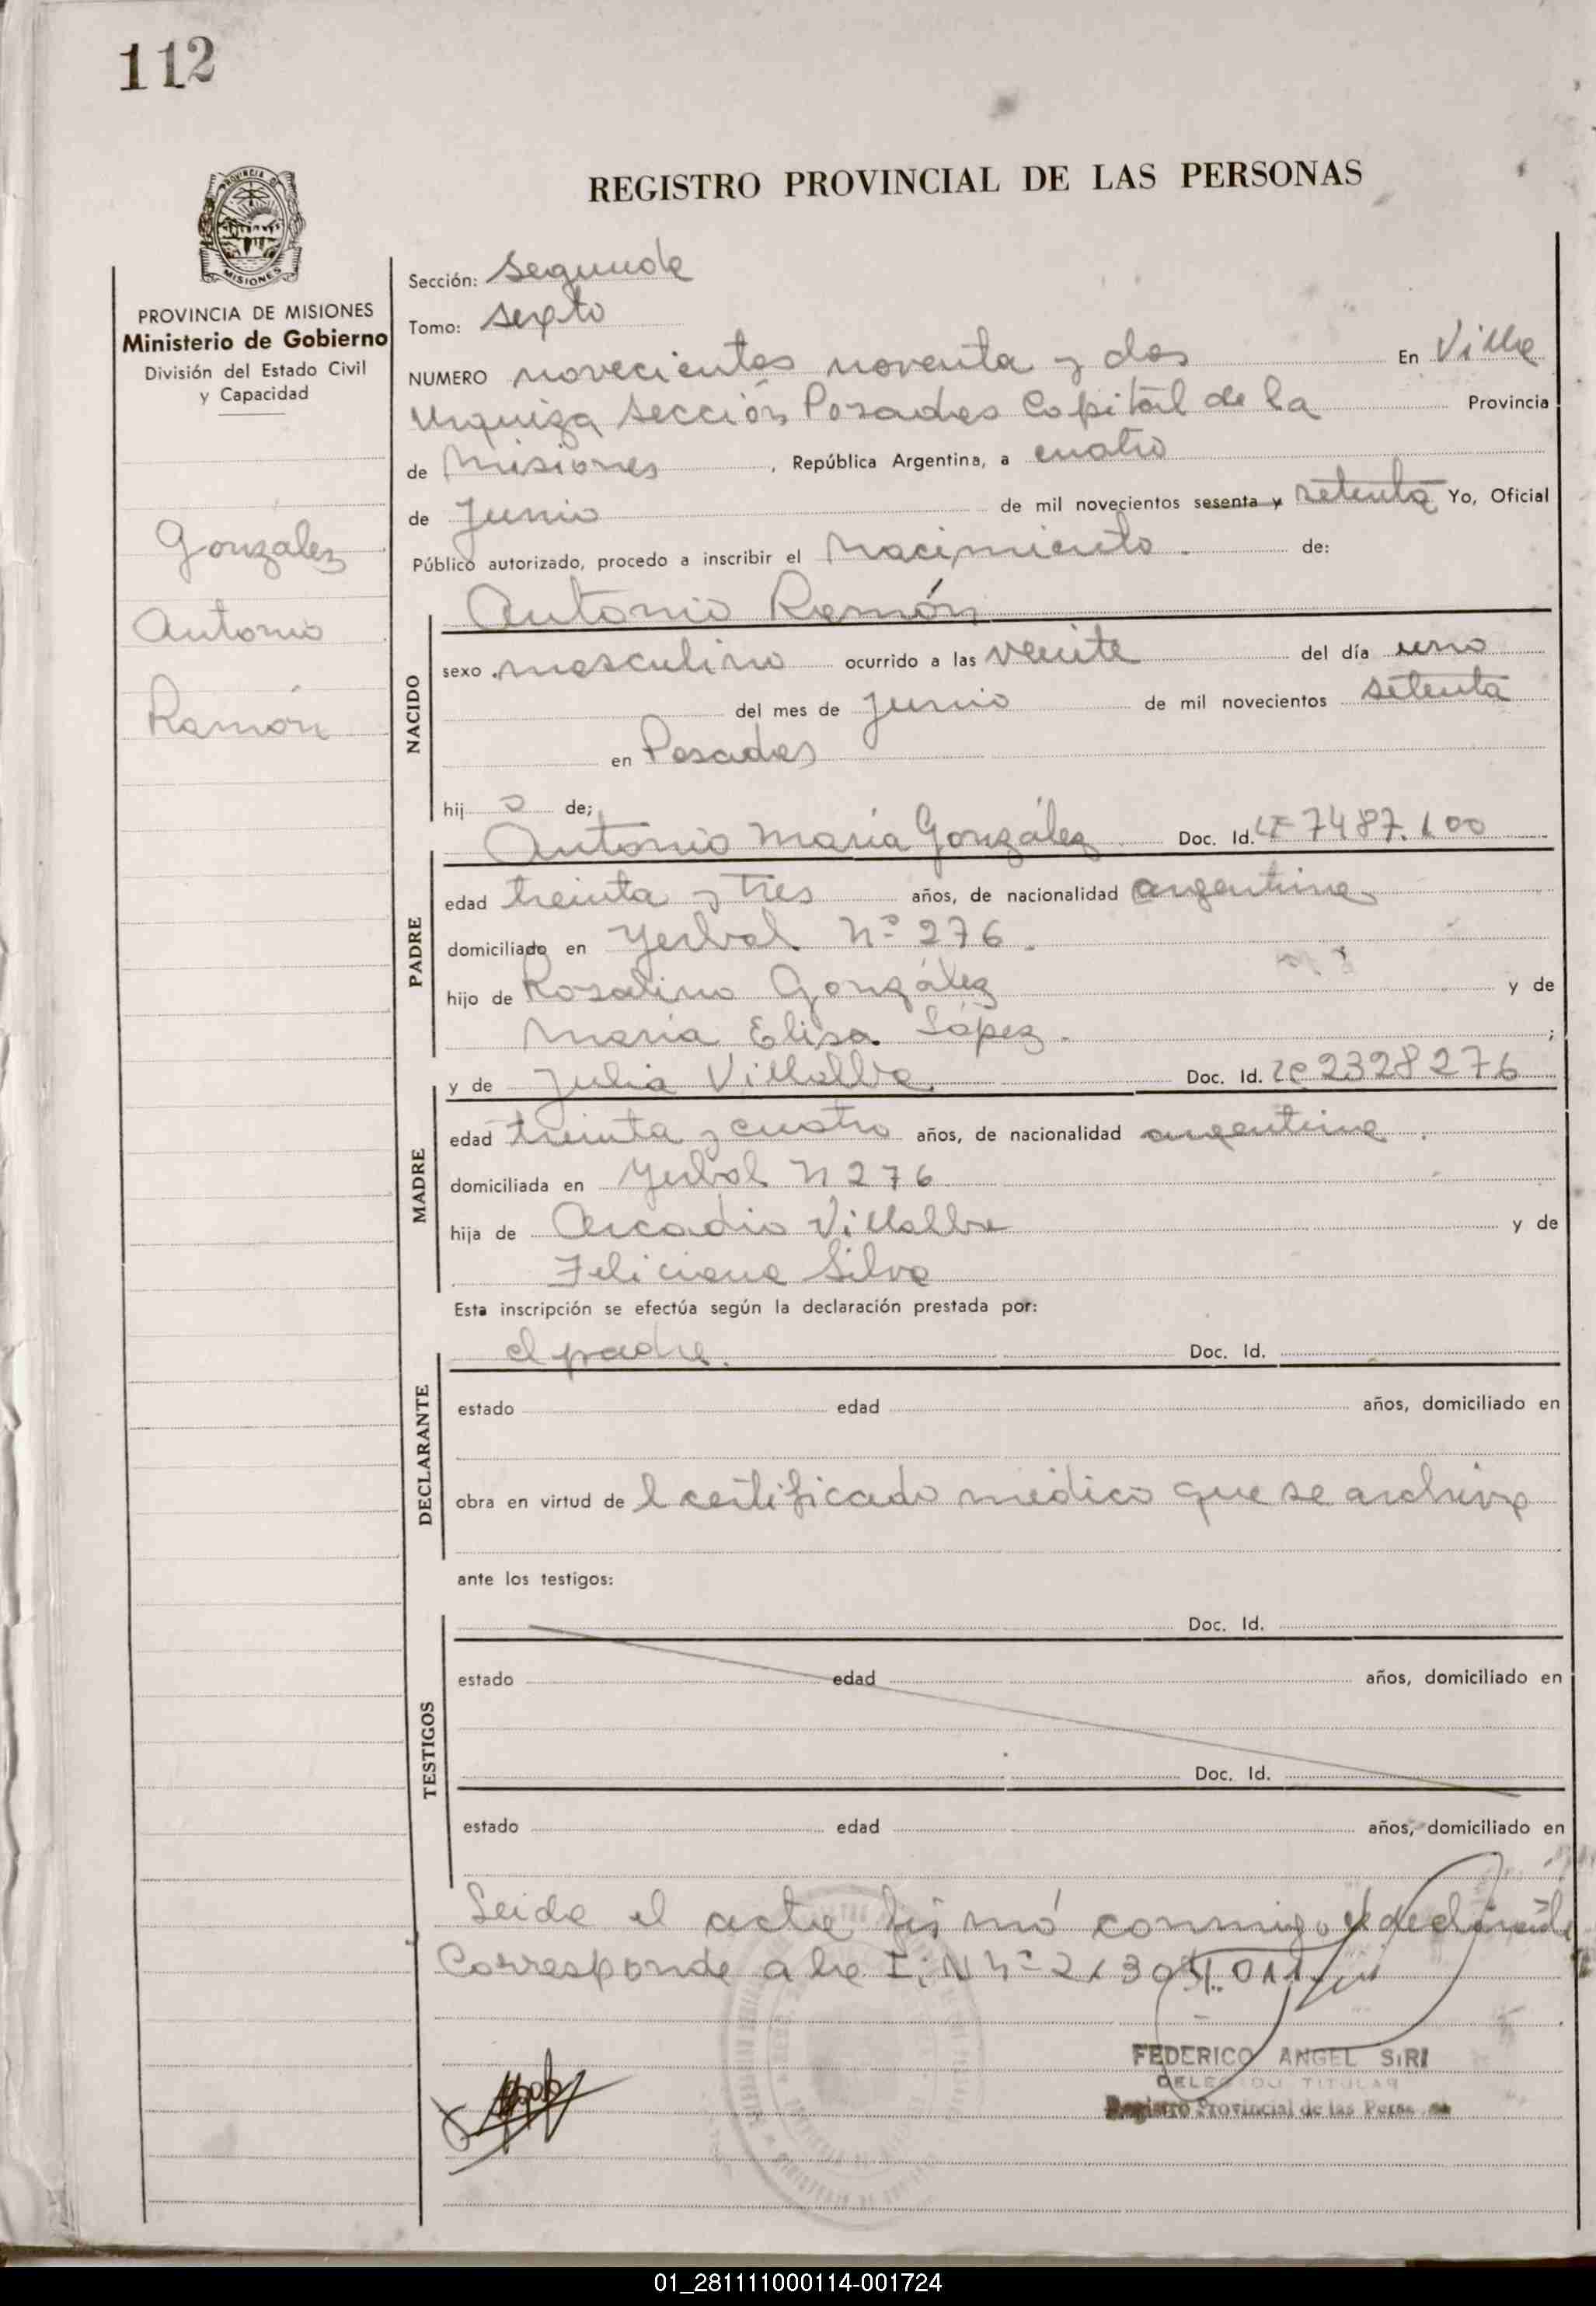 112
REGISTRO PROVINCIAL DE LAS PERSONAS
PROVINCIA DE MISIONES
MISIONES
PROVINCIA DE MISIONES
Ministerio de Gobierno
División del Estado Civil
y Capacidad
Gonzalez
Antonio
Ramón
Sección: Segunda
Tomo: sexto
NUMERO novecientos noventa y dos En Villa
Urquiza Sección Posadas Capital de la Provincia
de Misiones, República Argentina, a cuatro
de Junio de mil novecientos sesenta y setenta Yo, Oficial
Público autorizado, procedo a inscribir el Nacimiento. de:
NACIDO
Antonio Ramón
sexo masculino ocurrido a las veinte del día uno
del mes de Junio de mil novecientos setenta
en Posadas
hij o de;
PADRE
Antonio María González Doc. Id. 7487.100
edad treinta y tres años, de nacionalidad argentina
domiciliado en Yerbal Nº 276.
hijo de Rosalino González y de
María Elisa López. ;
MADRE
y de Julia Villalba. Doc. Id. LC 2328276
edad treinta y cuatro años, de nacionalidad argentina.
domiciliada en Yerbal N 276
hija de Arcadio Villalba y de
Feliciana Silva
Esta inscripción se efectúa según la declaración prestada por:
DECLARANTE
el padre. Doc. Id.
estado edad años, domiciliado en
obra en virtud de l certificado médico que se archiva
ante los testigos:
TESTIGOS
Doc. Id.
estado edad años, domiciliado en
Doc. Id.
estado edad años, domiciliado en
Leida el acta firmó conmigo el declarante
Corresponde a la I; N Nº
FEDERICO ANGEL SIRI
DELEGADO TITULAR
Registro Provincial de las Personas
01_281111000114-001724